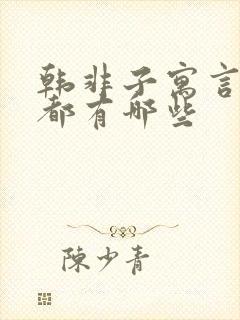 韩非子寓言
都有哪些
陳少青